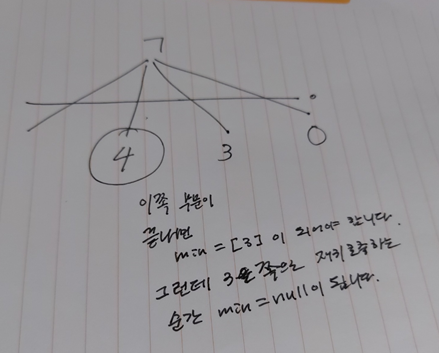 7
4
3
0
이쪽 부분이
끝나면
min = [3] 이 되어야 합니다.
그런데 3 쪽으로 재귀호출하는
순간 min = null이 됩니다.